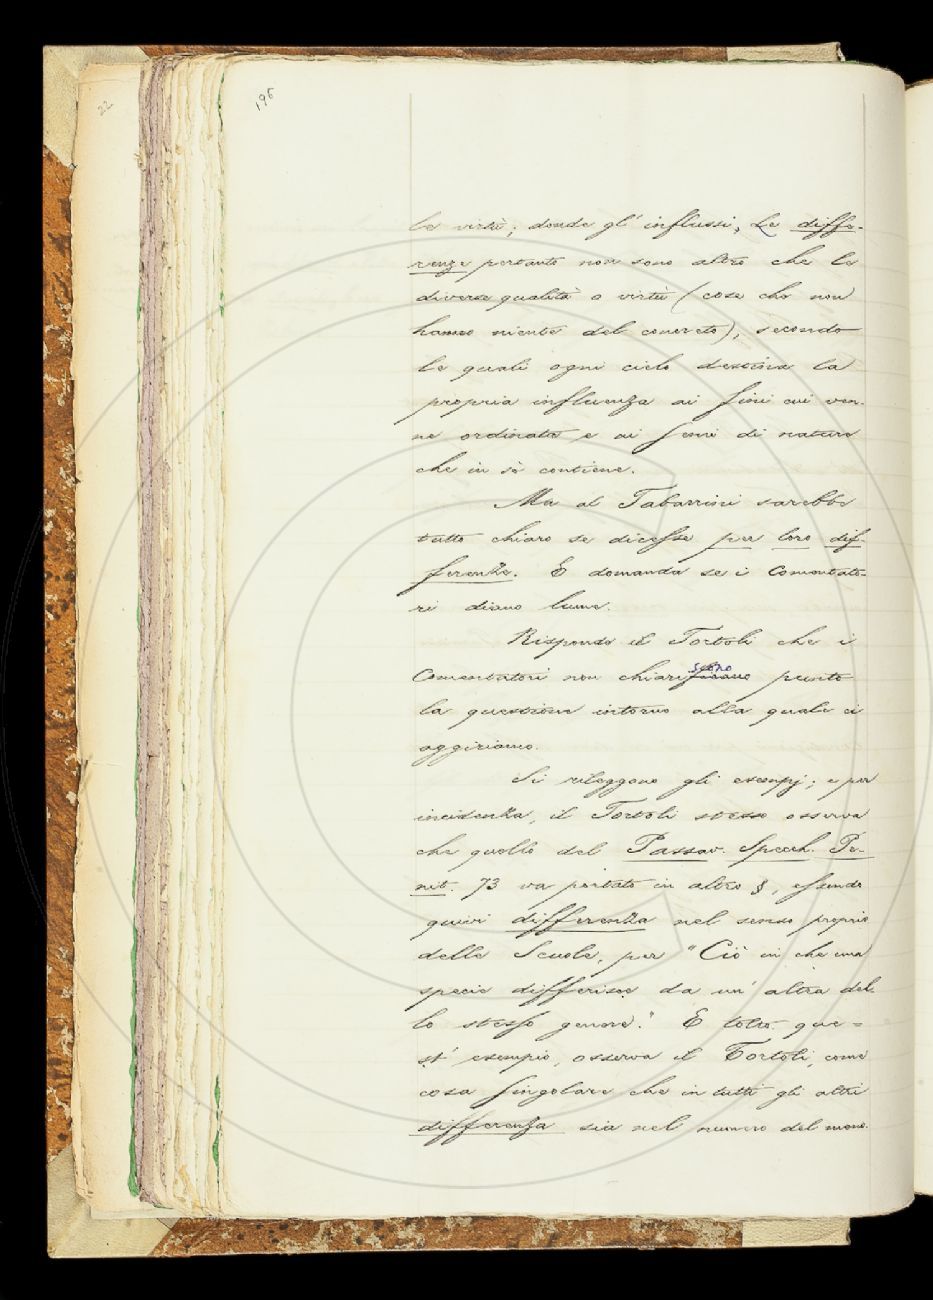 22
196
le virtù; donde gl'influssi. Le diffe-
renze pertanto non sono altro che le
diverse qualità o virtù (cose che non
hanno niente del concreto), secondo
le quali ogni cielo destina la
propria influenza ai fini cui ven-
ne ordinato e ai semi di natura
che in sè contiene.
Ma al Tabarrini sarebbe
tutto chiaro se dicesse per loro dif-
ferenze. E domanda se i Comentato-
ri diano lume.
Risponde il Tortoli che i
Comentatori non chiariscono punto
la questione intorno alla quale ci
aggiriamo.
Si rileggono gli esempj; e per
incidenza, il Tortoli stesso osserva
che quello del Passav. Specch. Pe-
nit. 73 va portato in altro §, essendo
quivi differenza nel senso proprio
delle Scuole, per "Ciò in che una
specie differisce da un'altra del-
lo stesso genere." E tolto que=
st'esempio, osserva il Tortoli, come
cosa singolare che in tutti gli altri
differenza sia nel numero del meno.